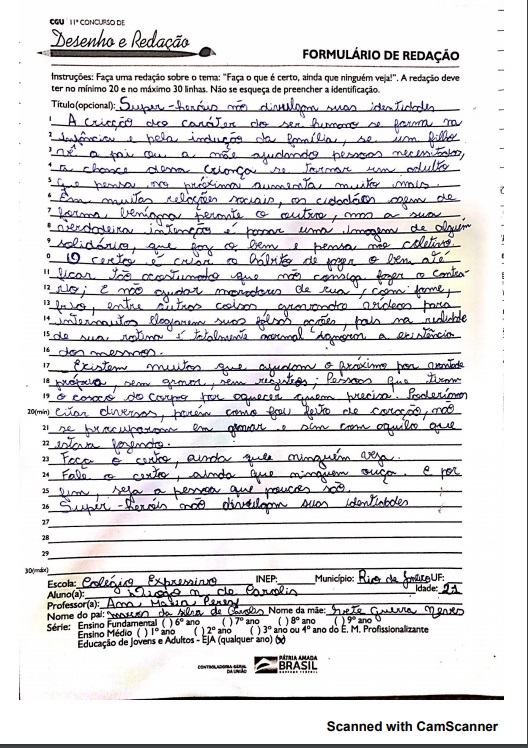 CGU 11º CONCURSO DE
Desenho e Redação
FORMULÁRIO DE REDAÇÃO
Instruções: Faça uma redação sobre o tema: "Faça o que é certo, ainda que ninguém veja!". A redação deve
ter no mínimo 20 e no máximo 30 linhas. Não se esqueça de preencher a identificação.
Título(opcional): Super-heróis não divulgam suas identidades
1 A criação do caráter do ser humano se forma na
2 infância e pela indução da família, se um filho
3 vê a pai ou a mãe ajudando pessoas necessitadas,
4 a chance dessa criança se tornar um adulto
5 que pensa no próximo aumenta muito mais.
6 Em muitas relações sociais, os cidadãos agem de
7 forma benigna perante o outro, mas a sua
8 verdadeira intenção é passar uma imagem de alguém
9 solidário, que faz o bem e pensa no coletivo.
10 O certo é criar o hábito de fazer o bem até
11 ficar tão acostumado que não consiga fazer o contrá-
12 rio; E não ajudar moradores de rua, com fome,
13 frio, entre outras coisas gravando vídeos para
14 internautas elogiarem suas falsas ações, pois na realidade
15 de sua rotina é totalmente normal ignorar a existência
16 dos mesmos.
17 Existem muitos que ajudam o próximo por vontade
18 própria, sem gravar, sem registros; Pessoas que tiram
19 o casaco do corpo por aquecer quem precisa. Poderíamos
20(min) citar diversos, porém como foi feito de coração, não
21 se preocuparam em gravar e sim com aquilo que
22 estava fazendo.
23 Faça o certo, ainda que ninguém veja.
24 Fale o certo, ainda que ninguém ouça. E por
25 fim, seja a pessoa que poucos são.
26 Super-heróis não divulgam suas identidades
27
28
29
30(máx)
Escola: Colégio Expressivo INEP: Município: Rio de Janeiro UF:
Aluno(a): Diogo n de Carolis Idade: 21
Professor(a): Ana Maria Perez
Nome do pai: marcos da silva de Carolis Nome da mãe: Ivete Guerra Neves
Série: Ensino Fundamental ( ) 6º ano ( ) 7º ano ( ) 8º ano ( ) 9º ano
Ensino Médio ( ) 1º ano ( ) 2º ano ( ) 3º ano ou 4º ano do E. M. Profissionalizante
Educação de Jovens e Adultos - EJA (qualquer ano) (x)
CONTROLADORIA-GERAL
DA UNIÃO
PÁTRIA AMADA
BRASIL
GOVERNO FEDERAL
Scanned with CamScanner